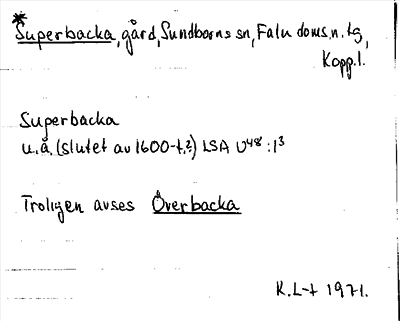 *Superbacka, gård, Sundborns sn, Falu doms.n. tg,
Kopp.l.
Superbacka
u.å. (slutet av 1600-t.?) LSA U48:1³
Troligen avses Överbacka
K.L-t 1971.